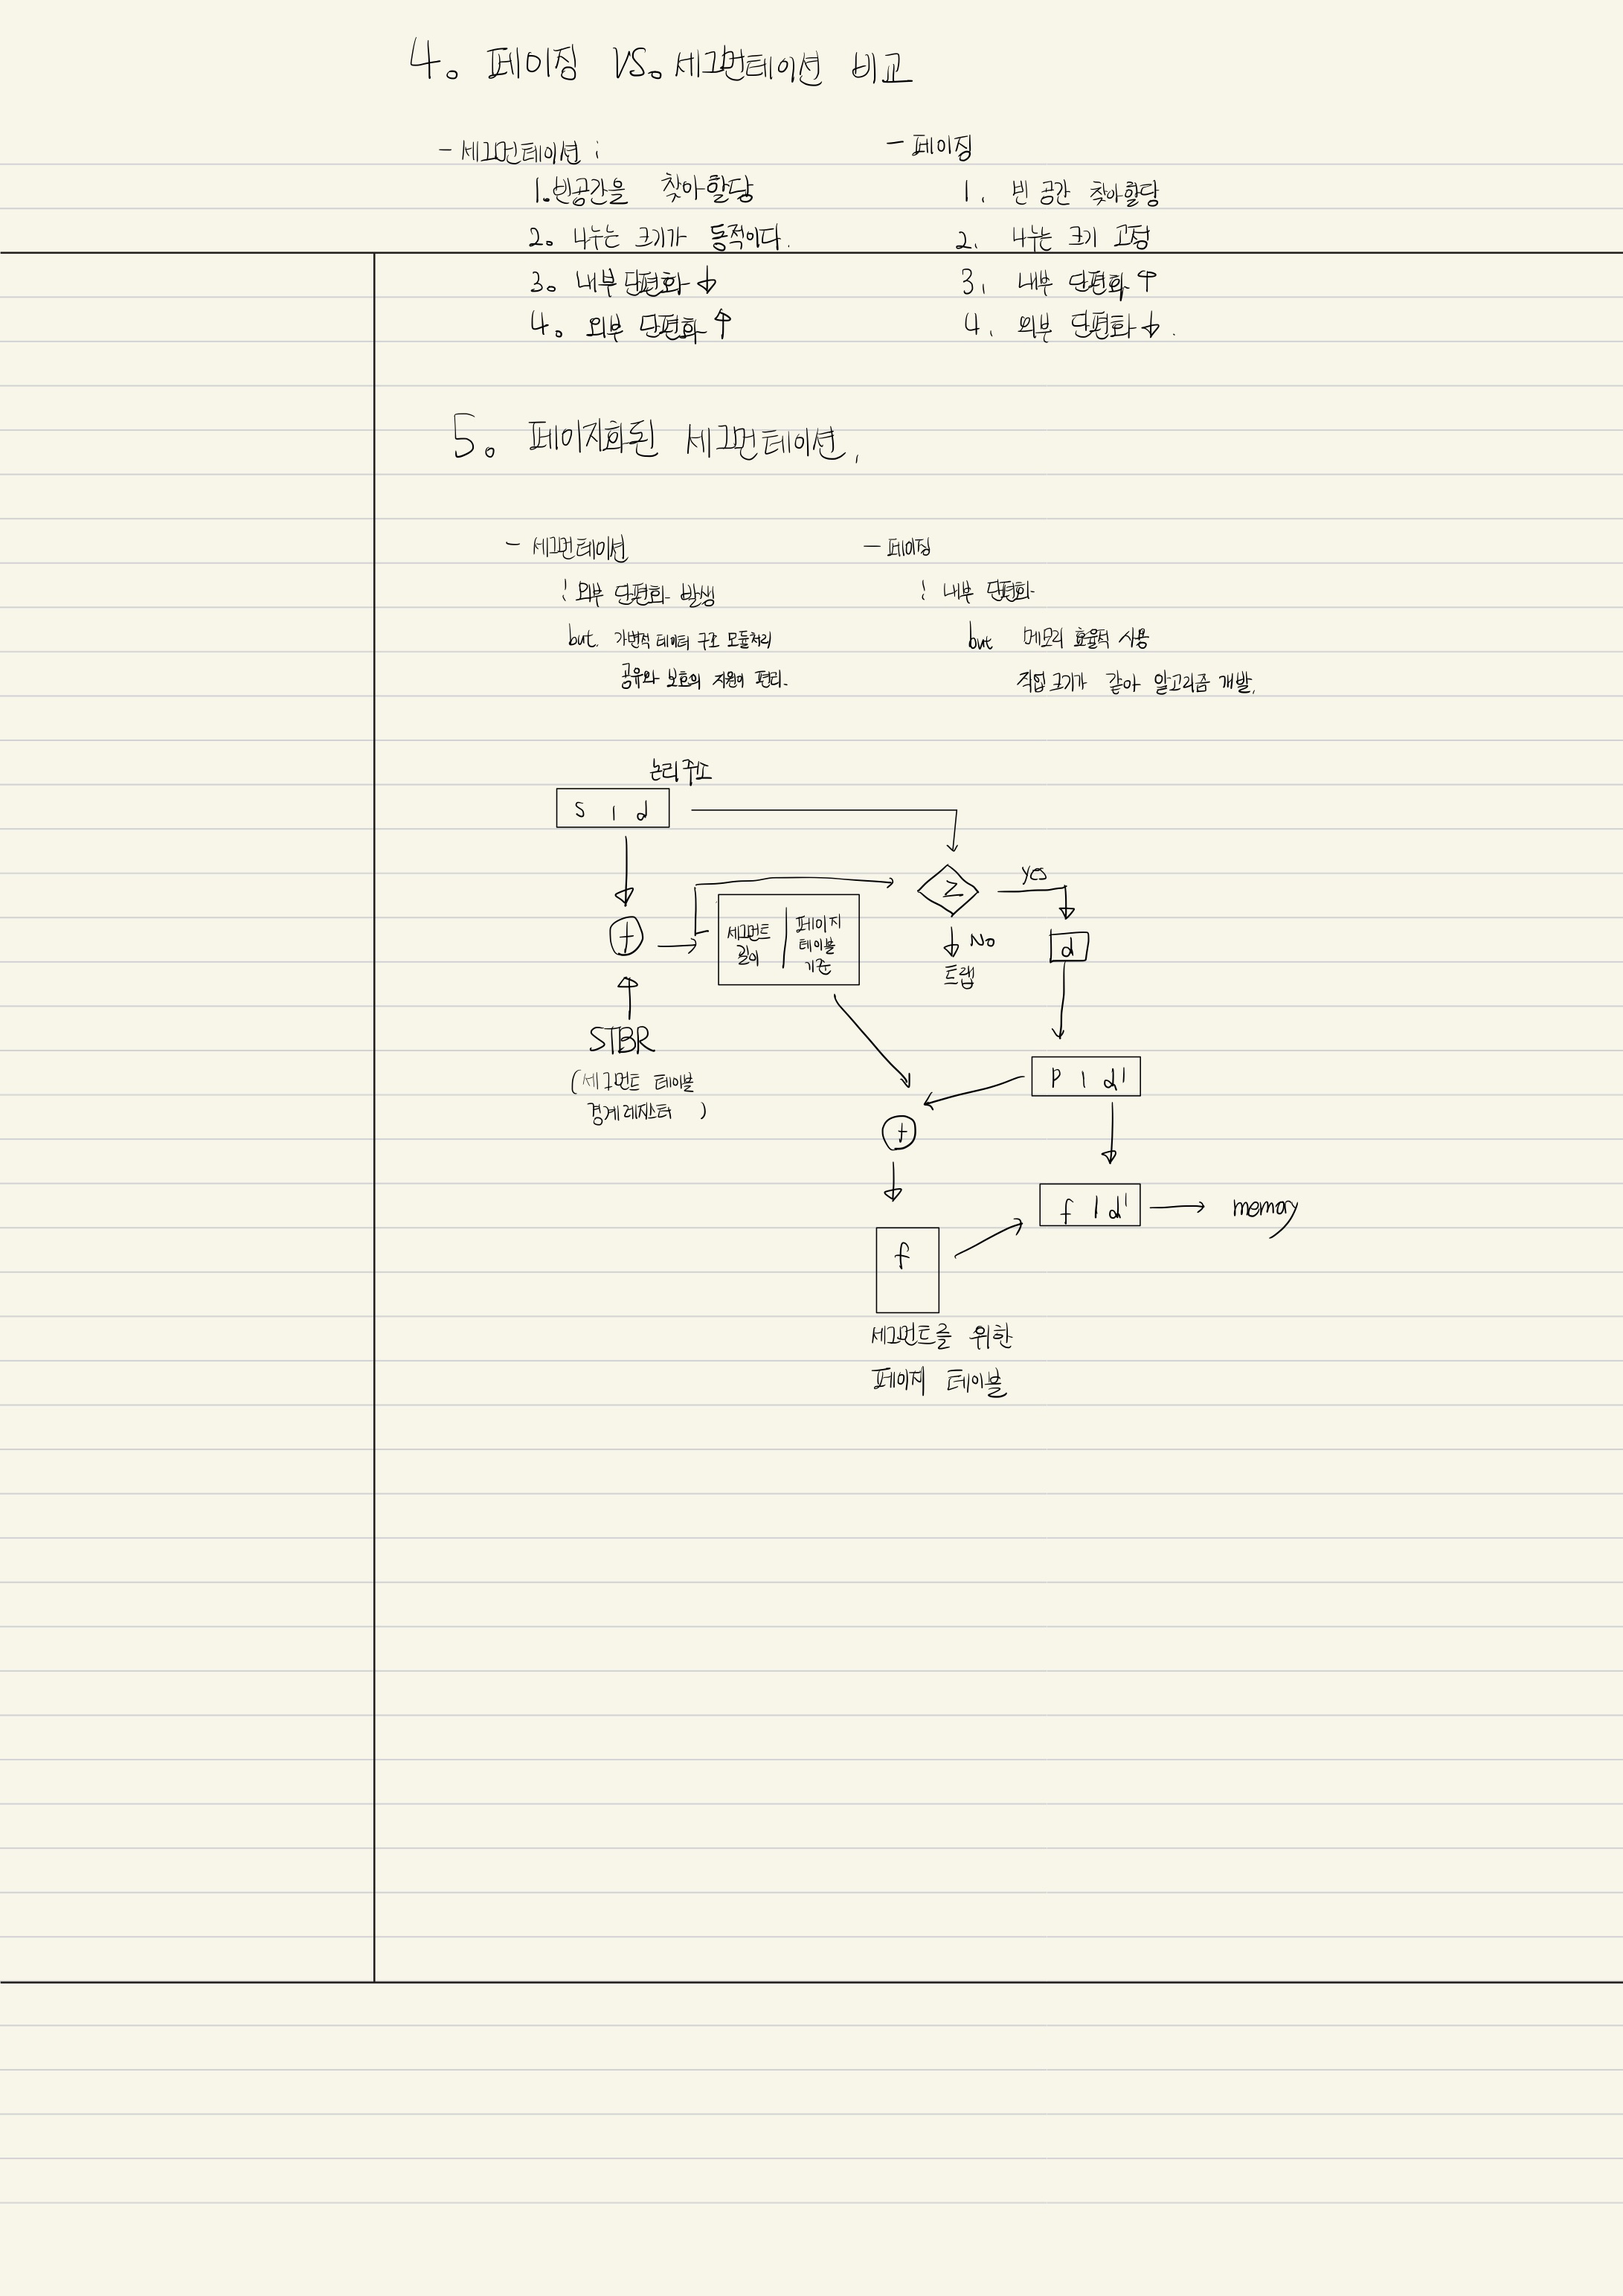 4. 페이징 VS. 세그먼테이션 비교
- 세그먼테이션 ;
1. 빈공간을 찾아할당
2. 나누는 크기가 동적이다.
3. 내부 단편화 ↓
4. 외부 단편화 ↑
- 페이징
1. 빈 공간 찾아할당
2. 나누는 크기 고정
3. 내부 단편화 ↑
4. 외부 단편화 ↓.
5. 페이지화된 세그먼테이션.
- 세그먼테이션
: 외부 단편화 발생
but. 가변적 데이터 구조 모듈처리
공유와 보호의 지원이 편리.
- 페이징
: 내부 단편화
but 메모리 효율적 사용
작업 크기가 같아 알고리즘 개발.
논리 주소
s | d
+
STBR
(세그먼트 테이블
경계 레지스터 )
세그먼트
길이
페이지
테이블
기준
≥
yes
No
트랩
d
p | d'
+
f | d' → memory
f
세그먼트를 위한
페이지 테이블